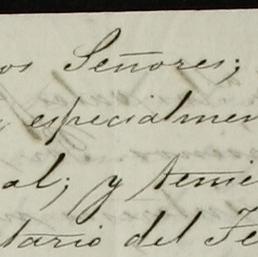 os Señores;
especialmen
al; y tenie
tario del Fe